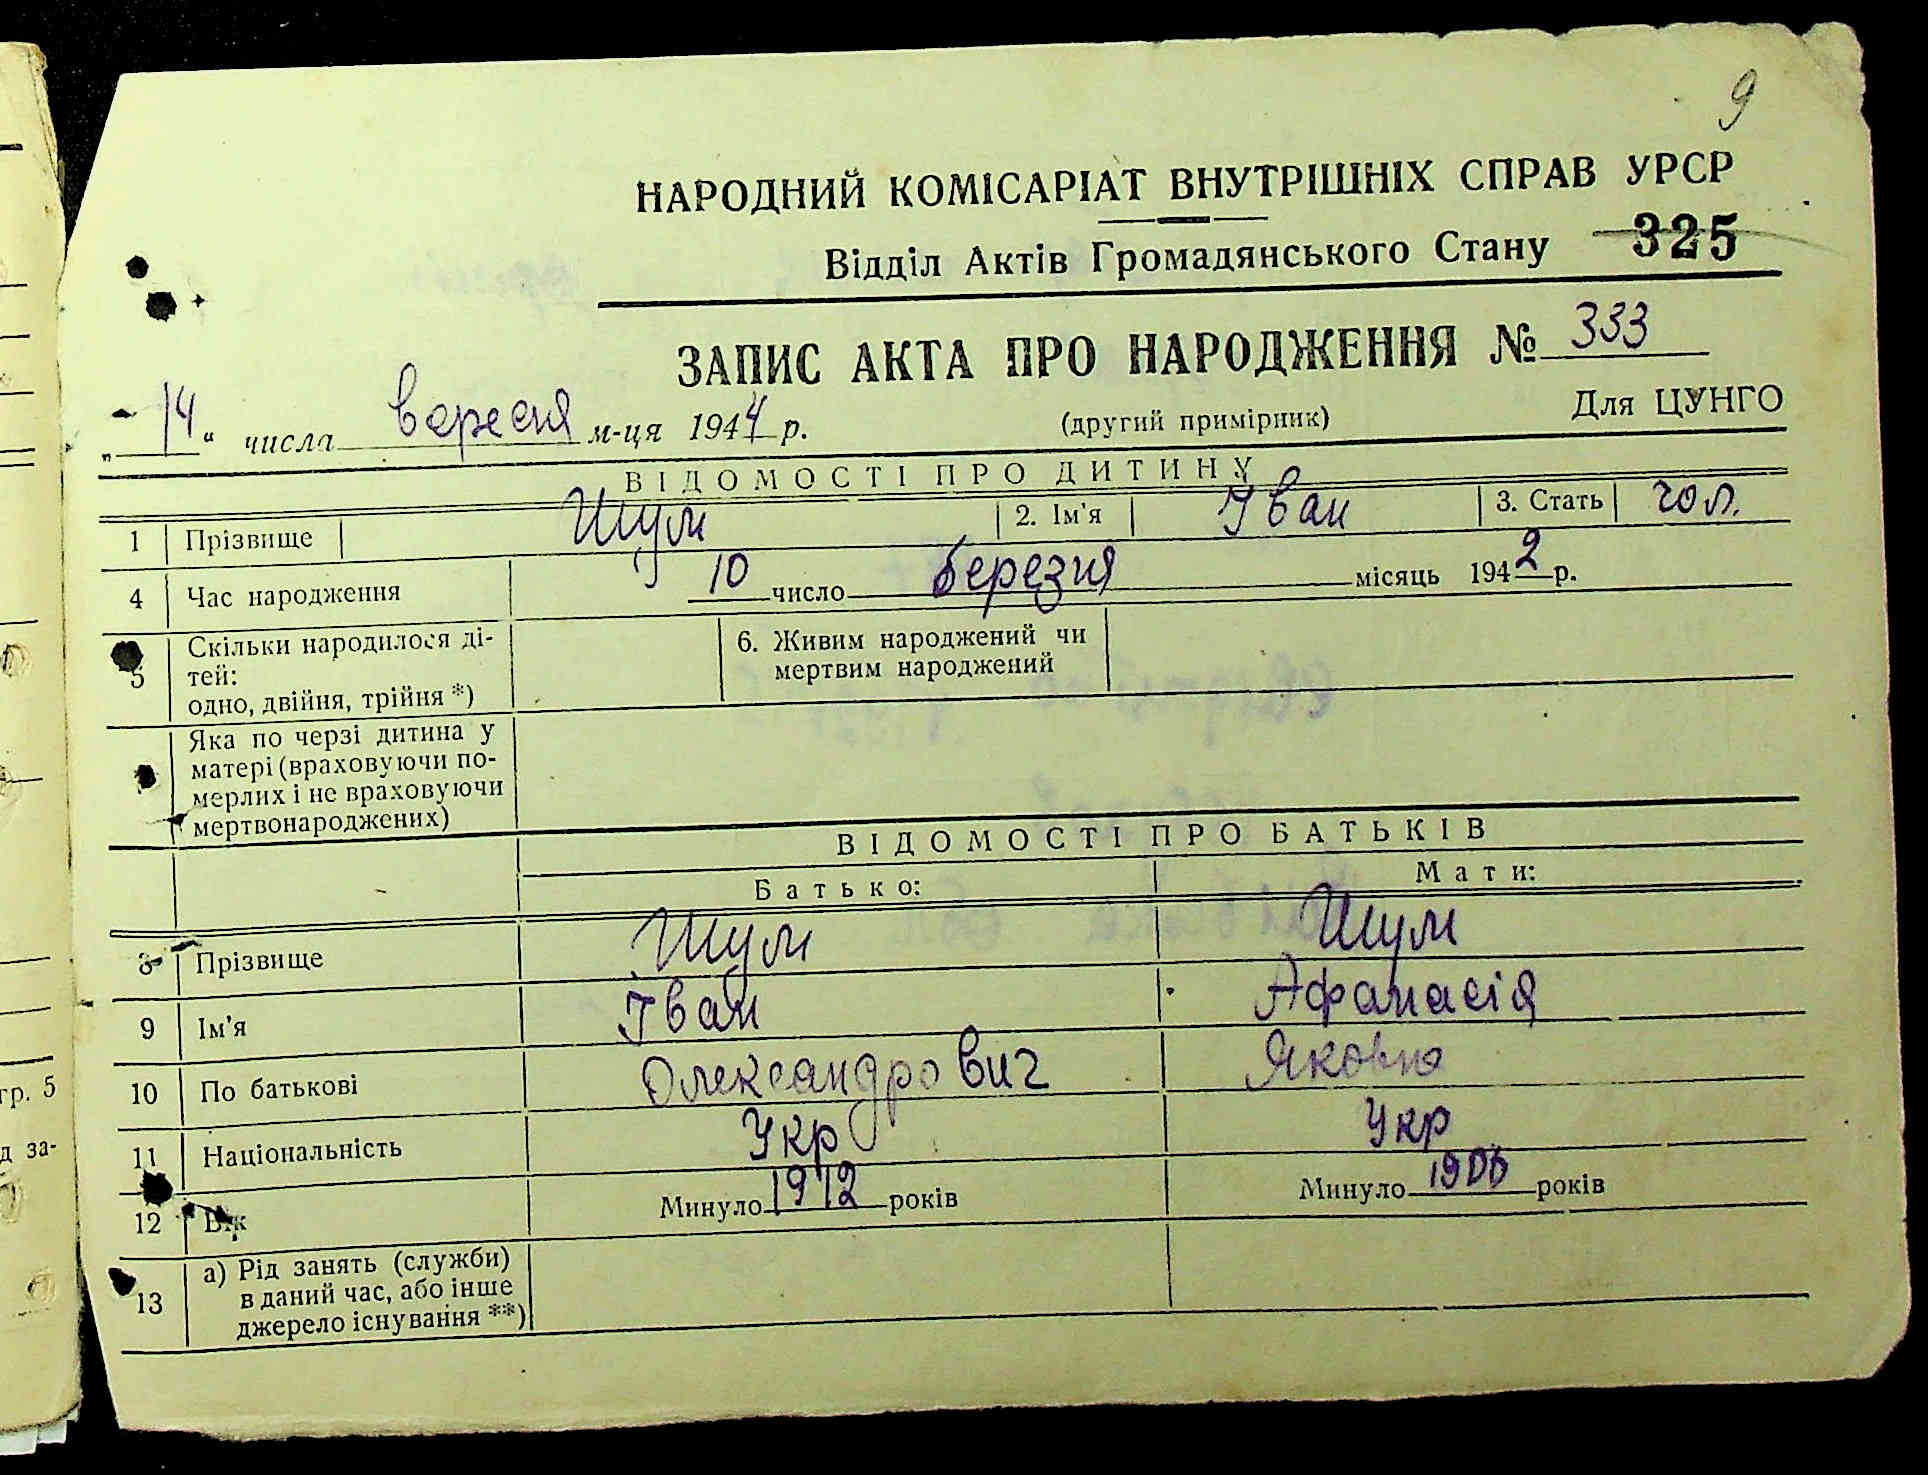 9
НАРОДНИЙ КОМІСАРІАТ ВНУТРІШНІХ СПРАВ УРСР
Відділ Актів Громадянського Стану 325
ЗАПИС АКТА ПРО НАРОДЖЕННЯ № 333
„14“ числа вересня м-ця 1944 р. (другий примірник) Для ЦУНГО
ВІДОМОСТІ ПРО ДИТИНУ
1 Прізвище Шум 2. Ім'я Іван 3. Стать чол.
4 Час народження 10 число березня місяць 1942 р.
5 Скільки народилося ді-
тей:
одно, двійня, трійня *)
6. Живим народжений чи
мертвим народжений
Яка по черзі дитина у
матері (враховуючи по-
мерлих і не враховуючи
мертвонароджених)
ВІДОМОСТІ ПРО БАТЬКІВ
Батько: Мати:
8 Прізвище Шум Шум
9 Ім'я Іван Афанасія
10 По батькові Олександрович Яковна
11 Національність Укр Укр
12 Вік Минуло 1912 років Минуло 1906 років
13 а) Рід занять (служби)
в даний час, або інше
джерело існування **)
гр. 5
д за-